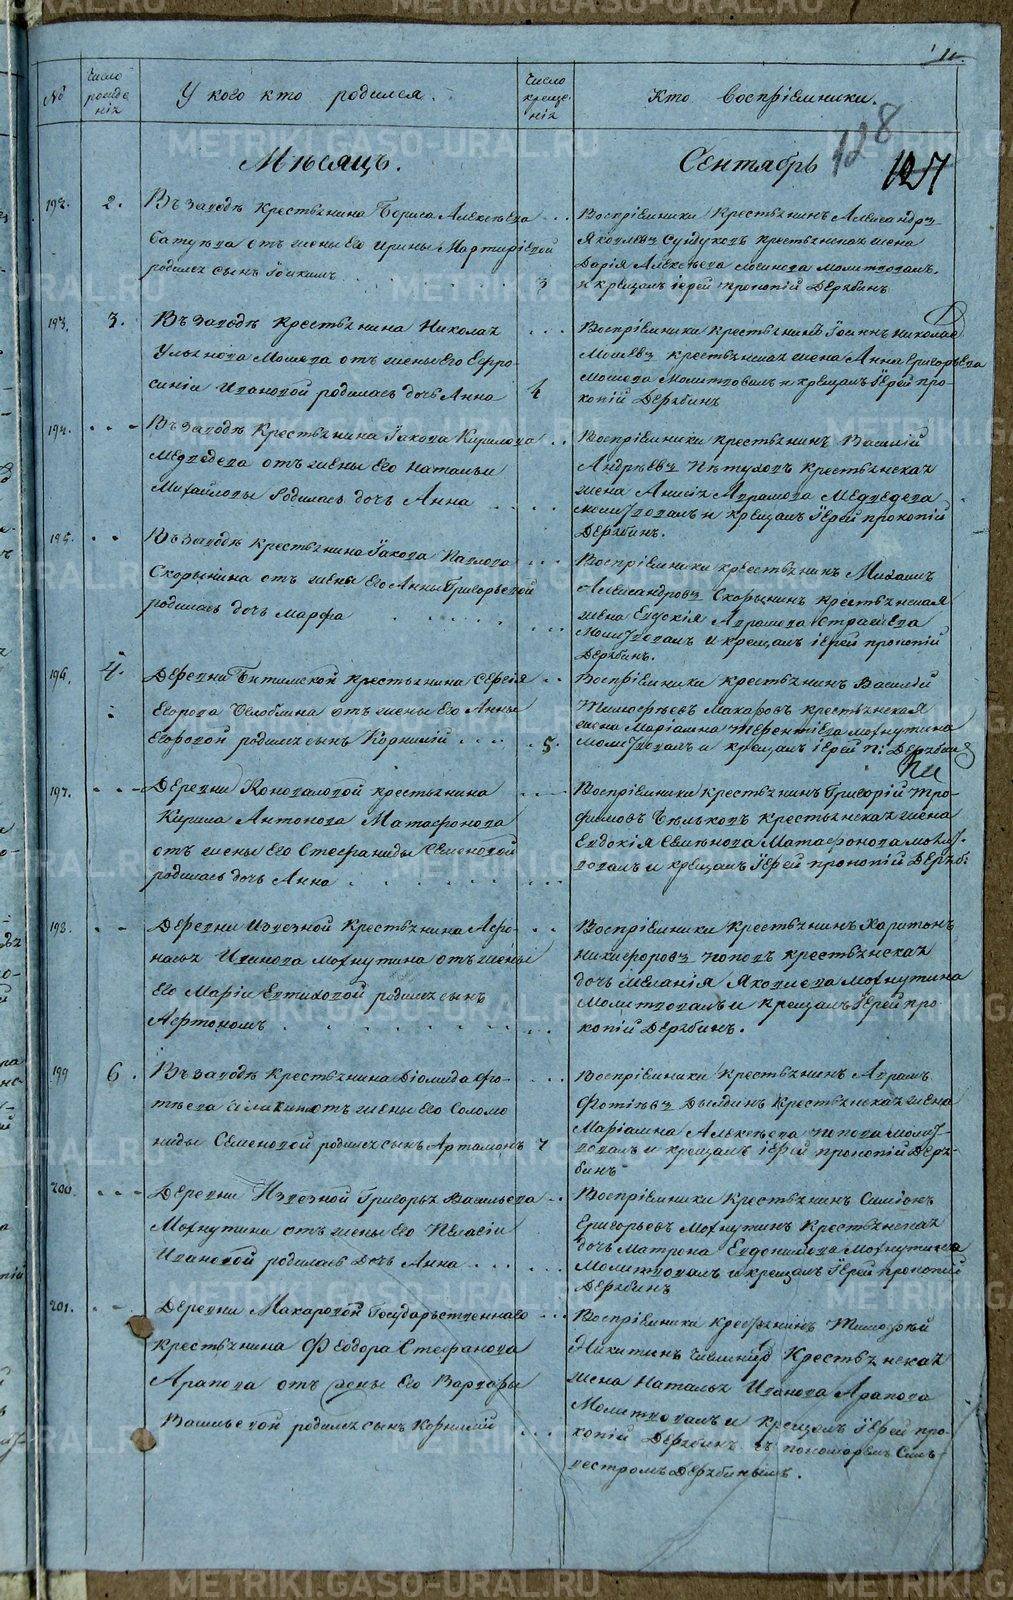 №
Число рожде нія
У кого кто родился.
Число креще нія
Кто воспріемники.
128
Мѣсяцъ.
Сентябрь
192. 2. Въ заводѣ Крестьянина Бориса Алексѣева
отъ жены Его Ирины
родился сынъ Іоакимъ 3
Воспріемники Крестьянинъ Александръ
Яковлевъ Сундуковъ крестьянская жена
Дарія Алексѣева молитвовалъ
и крещалъ іерей прокопій Дерябинъ
193. 3. Въ заводѣ крестьянина Николая
Ульянова отъ жены Его Ефро-
синіи Ивановой родилась дочь Анна 4
Воспріемники крестьянинъ Іоаннъ Николаевъ
крестьянская жена Анна Григорьева
молитвовалъ и крещалъ Іерей про-
копій Дерябинъ
194. Въ заводѣ Крестьянина Іакова Кирилова
Медведева отъ жены Его Натальи
Михайловы Родилась дочь Анна
Воспріемники крестьянинъ Василій
Андрѣевъ Пѣтуховъ крестьянская
жена Анисія Абрамова Медведева
молитвовалъ и крещалъ Іерей прокопій
Дерябинъ.
195. Въ заводѣ крестьянина Іакова Павлова
Скорынина отъ жены Его Анны Григорьевой
родилась дочь Марфа
Воспріемники крестьянинъ Михаилъ
Александровъ Скорынинъ крестьянская
жена Евдокія Абрамова
молитвовалъ и крещалъ іерей прокопій
Дерябинъ.
196. 4. Деревни Битимской крестьянина Сергея
Егорова отъ жены Его Анны
Егоровой родился сынъ Корнилій 5.
Воспріемники крестьянинъ Василій
Тимофѣевъ Макаровъ крестьянская
жена Маріамна Терентіева Мохнутина
молитвовалъ и крещалъ іерей П. Дерябинъ
197. Деревни Коновановой крестьянина
Кирила Антонова Матафонова
отъ жены Его Стефаниды Семеновой
родилась дочь Анна
Воспріемники крестьянинъ Григорій Тро-
фимовъ Бѣльковъ крестьянская жена
Евдокія Матафонова молит-
вовалъ и крещалъ Іерей прокопій Деряб:
198. Деревни Извезной Крестьянина Афо-
насья Иванова Мохнутина отъ жены
Его Маріи Евтиховой родился сынъ
Афтономъ
Воспріемники крестьянинъ Харитонъ
Никифоровъ Поповъ крестьянская
дочь Меланія Яковлева Мохнутина
Молитвовалъ и крещалъ Іерей про-
копій Дерябинъ.
199 6. Въ заводѣ Крестьянина Діомида Фо-
тѣева отъ жены Его Соломо
ниды Семеновой родился сынъ Артамонъ 7
Воспріемники Крестьянинъ Абрамъ
Фотіевъ Крестьянская жена
Маріамна Алексѣева Попова молит-
вовалъ и крещалъ іерей прокопій Деря-
бинъ
200. Деревни Извезной Григорья Васильева
Мохнутина отъ жены Его Пелагіи
Ивановой родилась Дочь Анна
Воспріемники Крестьянинъ Симіонъ
Григорьевъ Мохнутинъ Крестьянская
дочь Матрона Евдокимова Мохнутина
Молитвовалъ и крещалъ Іерей прокопій
Дерябинъ
201. Деревни Макаровой Государственнаго
крестьянина Феодора Стефанова
Арапова отъ жены Его Варвары
Васильевой родился сынъ Корнилій
Воспріемники крестьянинъ Тимофѣй
Никитинъ Крестьянская
жена Наталья Иванова Арапова
Молитвовалъ и крещалъ Іерей про-
копій Дерябинъ съ пономаремъ Силь-
вестромъ Дерябинымъ.
METRIKI.GASO-URAL.RU